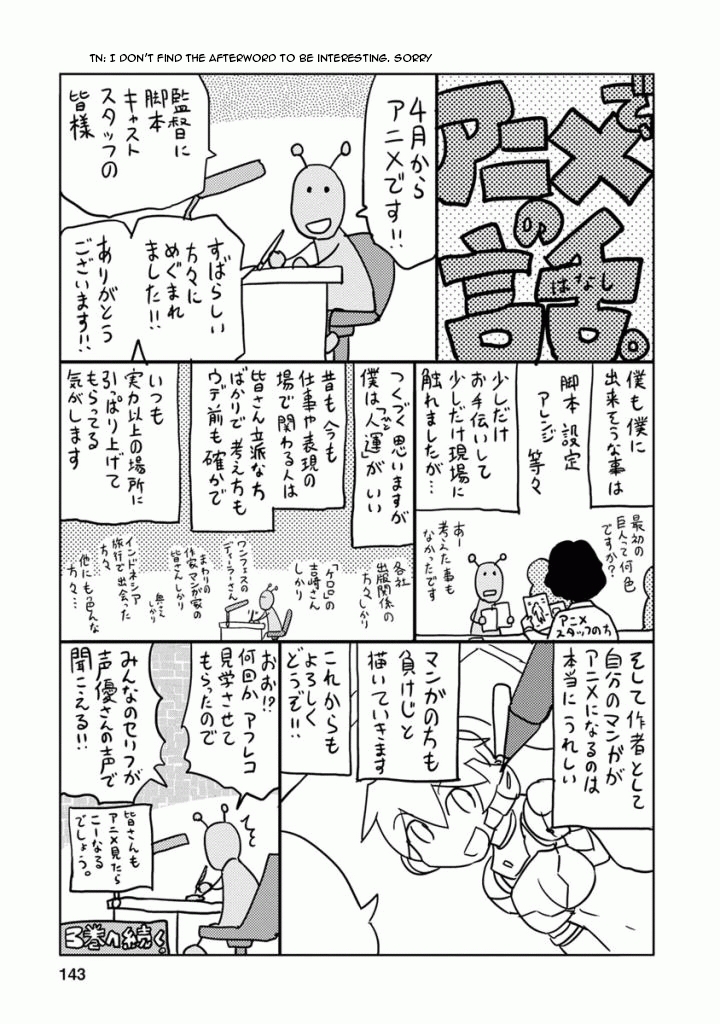 TN: I DON'T FIND THE AFTERWORD TO BE INTERESTING. SORRY
で、
アニメ
の
話。
はなし
4月から
アニメです!!
監督に
脚本
キャスト
スタッフの
皆様
すばらしい
方々に
めぐまれ
ました!!
ありがとう
ございます!!
僕も僕に
出来そうな事は
脚本 設定
アレンジ
等々
少しだけ
お手伝いして
少しだけ現場に
触れましたが…
最初の
巨人って何色
ですか?
あー
考えた事も
なかったです
アニメ
スタッフの方
つくづく思いますが
僕は「人運」がいい
ひと
昔も今も
仕事や表現の
場で関わる人は
皆さん立派な方
ばかりで 考え方も
ウデ前も確かで
いつも
実力以上の場所に
引っぱり上げて
もらってる
気がします
各社
出版関係の
方々しかり
「ケロロ」の
吉崎さん
しかり
ワンフェスの
ディーラーさん
まわりの
作家マンガ家の
皆さんしかり
しかり
インドネシア
旅行で出会った
方々
他にも色んな
方々…
そして作者として
自分のマンガが
アニメになるのは
本当にうれしい
マンガの方も
負けじと
描いていきます
これからも
よろしく
どうぞ!!
おお!?
何回か アフレコ
見学させて
もらったので
みんなのセリフが
声優さんの声で
聞こえる!!
皆さんも
アニメ見たら
こーなる
でしょう。
3巻へ続く。
143